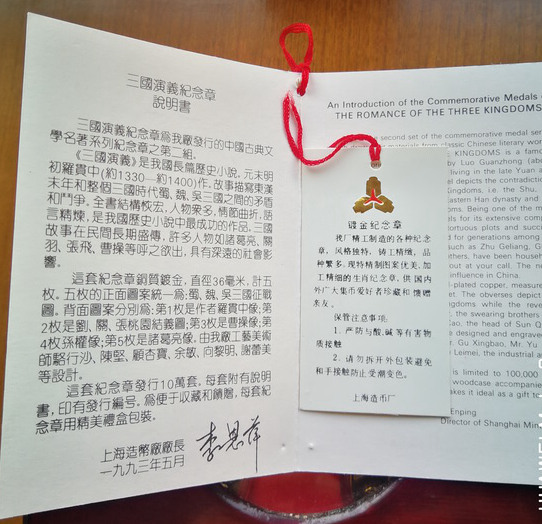 三國演義紀念章
説明書
三國演義紀念章爲我廠發行的中國古典文
學名著系列紀念章之第二組。
《三國演義》是我國長篇歷史小説。元末明
初羅貫中(約1330—約1400)作。故事描寫東漢
末年和整個三國時代蜀、魏、吳三國之間的矛盾
和鬥爭。全書結構恢宏,人物衆多,情節曲折,語
言精煉,是我國歷史小説中最成功的作品。三國
故事在民間長期盛傳,許多人物如諸葛亮、關
羽、張飛、曹操等呼之欲出,具有深遠的社會影
響。
這套紀念章銅質鍍金,直徑36毫米,計五
枚。五枚的正面圖案統一爲;蜀、魏、吳三國征戰
圖。背面圖案分别爲:第1枚是作者羅貫中像;第
2枚是劉、關、張桃園結義圖;第3枚是曹操像;第
4枚孫權像;第5枚是諸葛亮像。由我廠工藝美術
師駱行沙、陳堅、顧杏寶、余敏、向黎明、謝蕾美
等設計。
這套紀念章發行10萬套,每套附有説明
書,印有發行編号,爲便于收藏和饋贈,每套紀
念章用精美禮盒包裝。
上海造幣廠廠長
一九九三年五月
An Introduction of the Commemorative Medals
THE ROMANCE OF THE THREE KINGDOMS
second set of the commemorative medal
classic Chinese literary
KINGDOMS is a
by Luo Guanzhong
living in the late Yuan
depicts the contradiction
Kingdoms, i.e. the Shu,
Eastern Han dynasty and
Being one of the
for its extensive
plots and
for generations among
such as Zhu Geliang,
have been
out at your call. The
influence in China.
copper, measure
The obverses depict
kingdoms while the
the swearing brothers
the head of Sun
designed and
Gu Xingbao, Mr. Yu
Leimei, the industrial
is limited to 100,000
woodcase
makes it ideal as a gift to
Enping
Director of Shanghai
镀金纪念章
我厂精工制造的各种纪念
章,风格独特,铸工精细,品
种繁多,现特精制图案优美,加
工精细的生肖纪念章,供国内
外广大集币爱好者珍藏和馈赠
亲友。
保管注意事项:
1. 严防与酸、碱等有害物
质接触
2. 请勿拆开外包装避免
和手接触防止受潮变色。
上海造币厂
HUAWEI